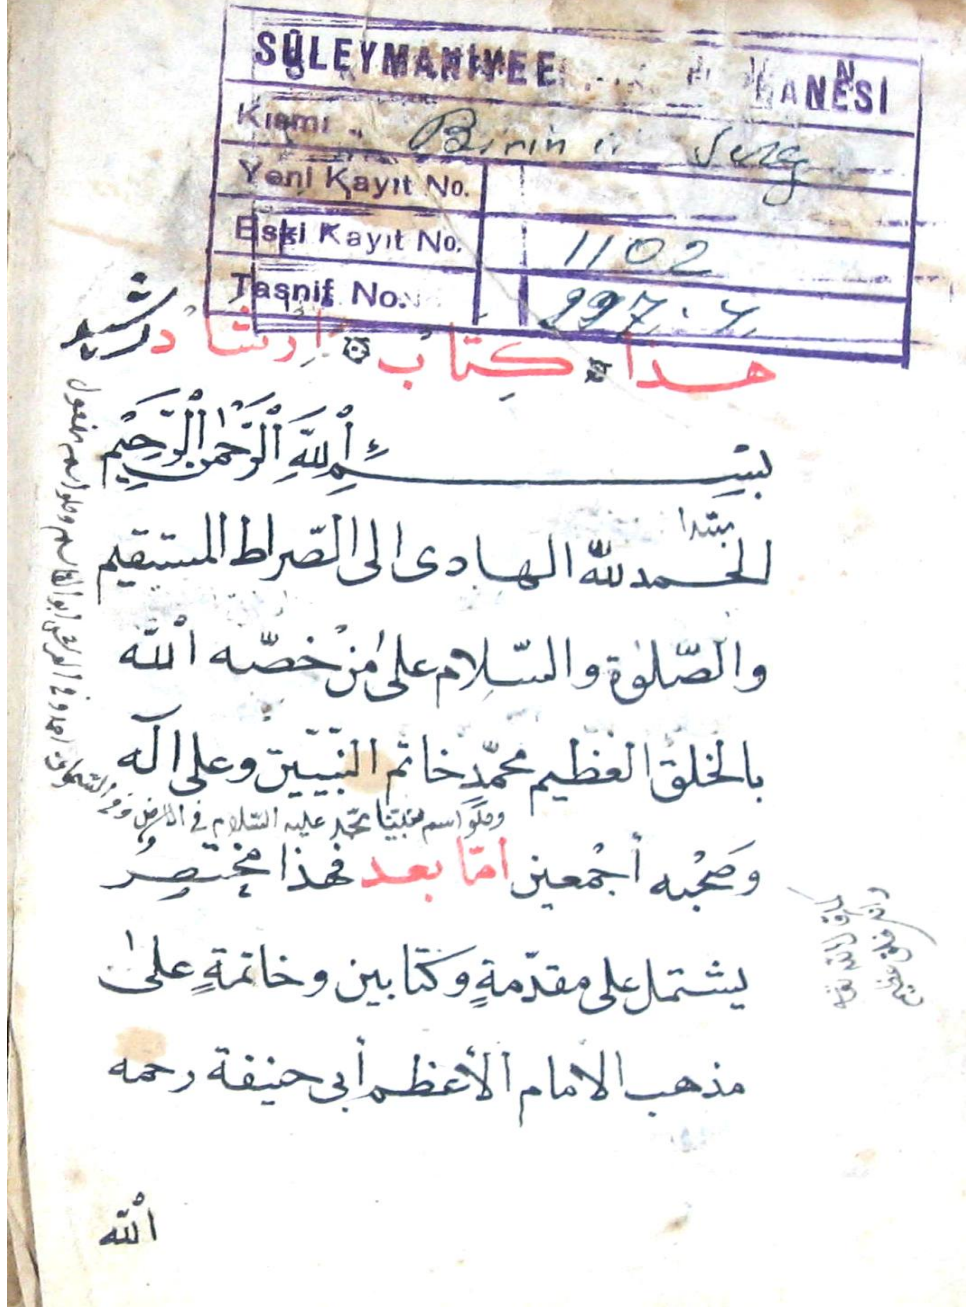 SÜLEYMANİYE HANESİ
Kısmı
Yeni Kayıt No.
Eski Kayıt No. 1102
Tasnif No. 297.4
هذا كتاب ارشاد رشيد
بسم الله الرحمن الرحيم
مبتدا
الحمد لله الهادى الى الصّراط المستقيم
والصّلوٰة والسّلام علىٰ من خصّه الله
بالخلق العظيم محمّدٍ خاتم النّبيّين وعلى اله
اسم نبينا محمّد عليه السّلام فى الارض وفى السّماء
وصحبه أجمعين امّا بعد فهذا مختصرٌ
يشتمل على مقدّمةٍ وكتابين وخاتمةٍ علىٰ
مذهب الامام الأعظم أبى حنيفة رحمه
الله